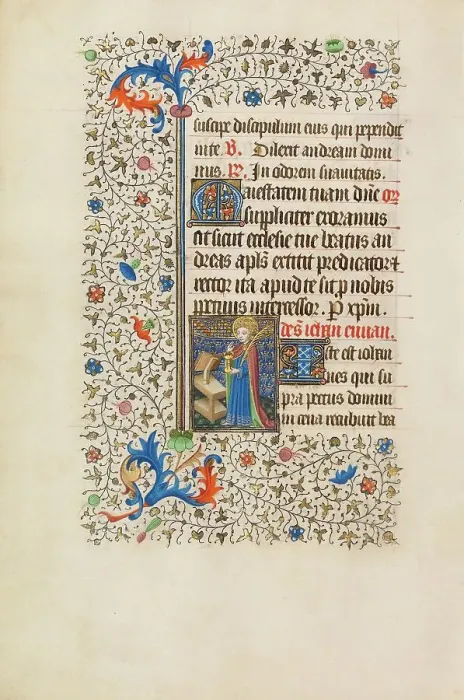 suscipe discipulum eius qui pependit
in te. V. Dilexit andream domi
nus. R. In odorem suavitatis.
Maiestatem tuam dne or
suppliciter exoramus
ut sicut ecclesie tue beatus an
dreas apls extitit predicator &
rector ita apud te sit p nobis
petuus intercessor. P xpm.
de s iohan euuan.
Iste est iohan
nes qui su
pra pectus domini
in cena recubuit bea